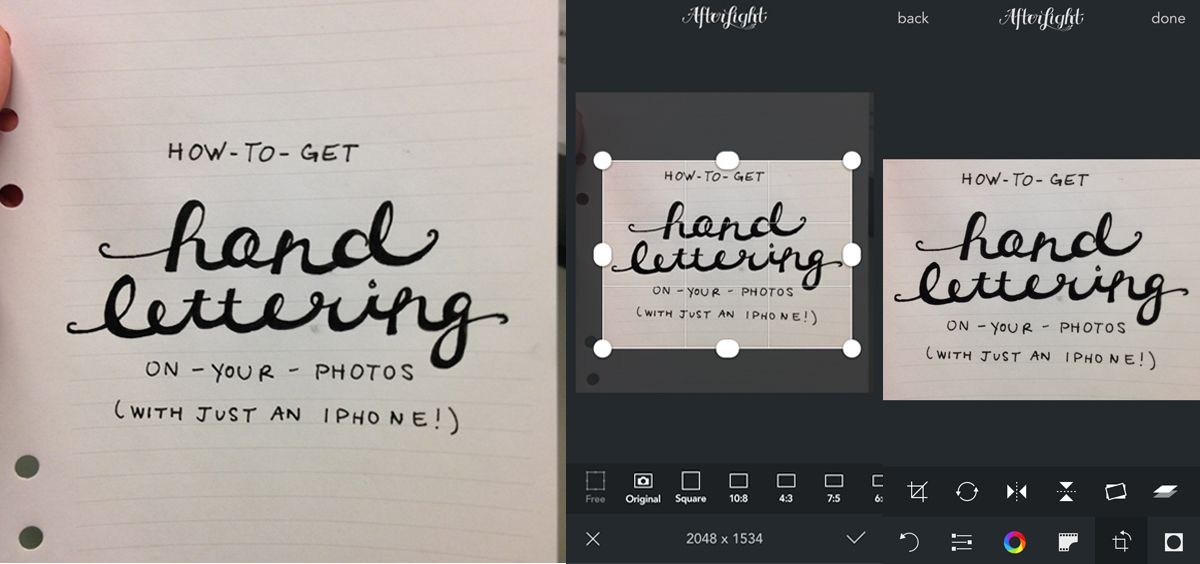 HOW-TO-GET
hand
lettering
ON-YOUR-PHOTOS
(WITH JUST AN IPHONE!)
Afterlight
HOW-TO-GET
hand
lettering
ON-YOUR-PHOTOS
(WITH JUST AN IPHONE!)
Free
Original
Square
10:8
4:3
7:5
6:
2048 x 1534
back
Afterlight
done
HOW-TO-GET
hand
lettering
ON-YOUR-PHOTOS
(WITH JUST AN IPHONE!)